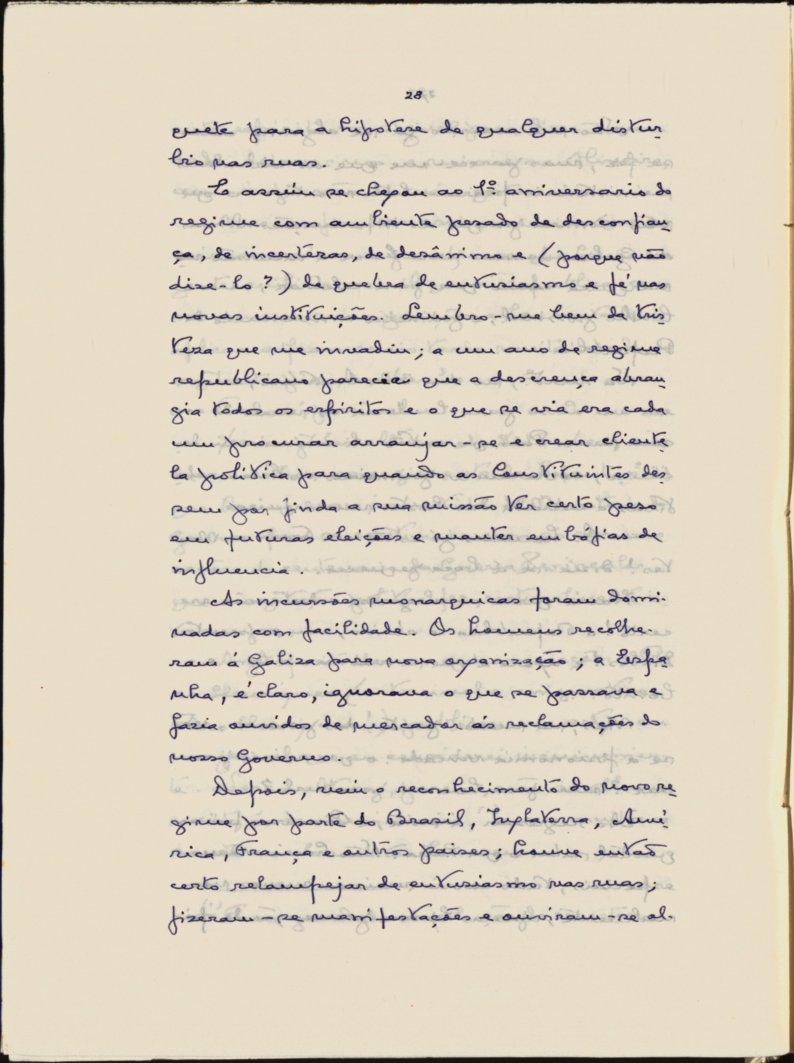 28
quete para a hipotese de qualquer distur-
bio nas ruas.
E assim se chegou ao 1º. aniversario do
regime com ambiente pesado de desconfian-
ça, de incertezas, de desânimo e (porque não
dize-lo?) de quebra de entusiasmo e fé nas
novas instituições. Lembro-me bem da tris-
teza que me invadiu; a um ano de regime
republicano parecia que a descrença abran-
gia todos os espiritos e o que se via era cada
um procurar arranjar-se e crear cliente-
la política para quando as Constituintes des-
sem por finda a sua missão ter certo peso
em futuras eleições e manter embófias de
influencia.
As incursões monarquicas foram domi-
nadas com facilidade. Os homens recolhe-
ram á Galiza para nova organização; a Espa-
nha, é claro, ignorava o que se passava e
fazia ouvidos de mercador ás reclamações do
nosso Governo.
Depois, veiu o reconhecimento do novo re-
gime por parte do Brasil, Inglaterra, Amé-
rica, França e outros paises; houve então
certo relampejar de entusiasmo nas ruas;
fizeram-se manifestações e ouviram-se al-